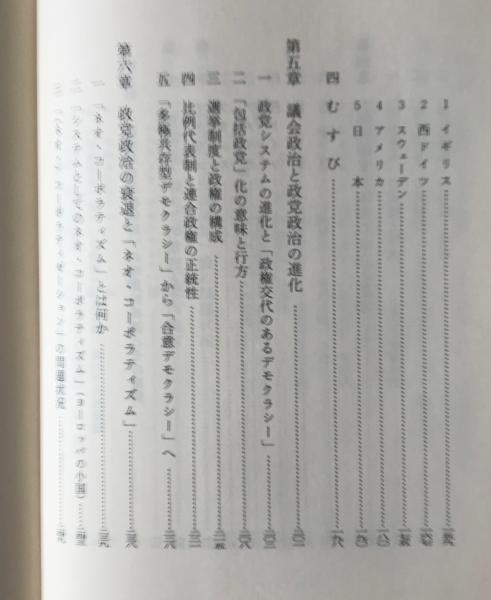 1 イギリス
2 西ドイツ
3 スウェーデン
4 アメリカ
5 日本
四 むすび
第五章 議会政治と政党政治の進化
一 政党システムの進化と「政権交代のあるデモクラシー」
二 「包括政党」化の意味と行方
三 選挙制度と政権の構成
四 比例代表制と連合政権の正統性
五 「多極共存型デモクラシー」から「合意デモクラシー」へ
第六章 政党政治の衰退と「ネオ・コーポラティズム」
一 「ネオ・コーポラティズム」とは何か
二 「システムとしてのネオ・コーポラティズム」(ヨーロッパの小国)
三 「ネオ・コーポラティゼーション」の問題状況